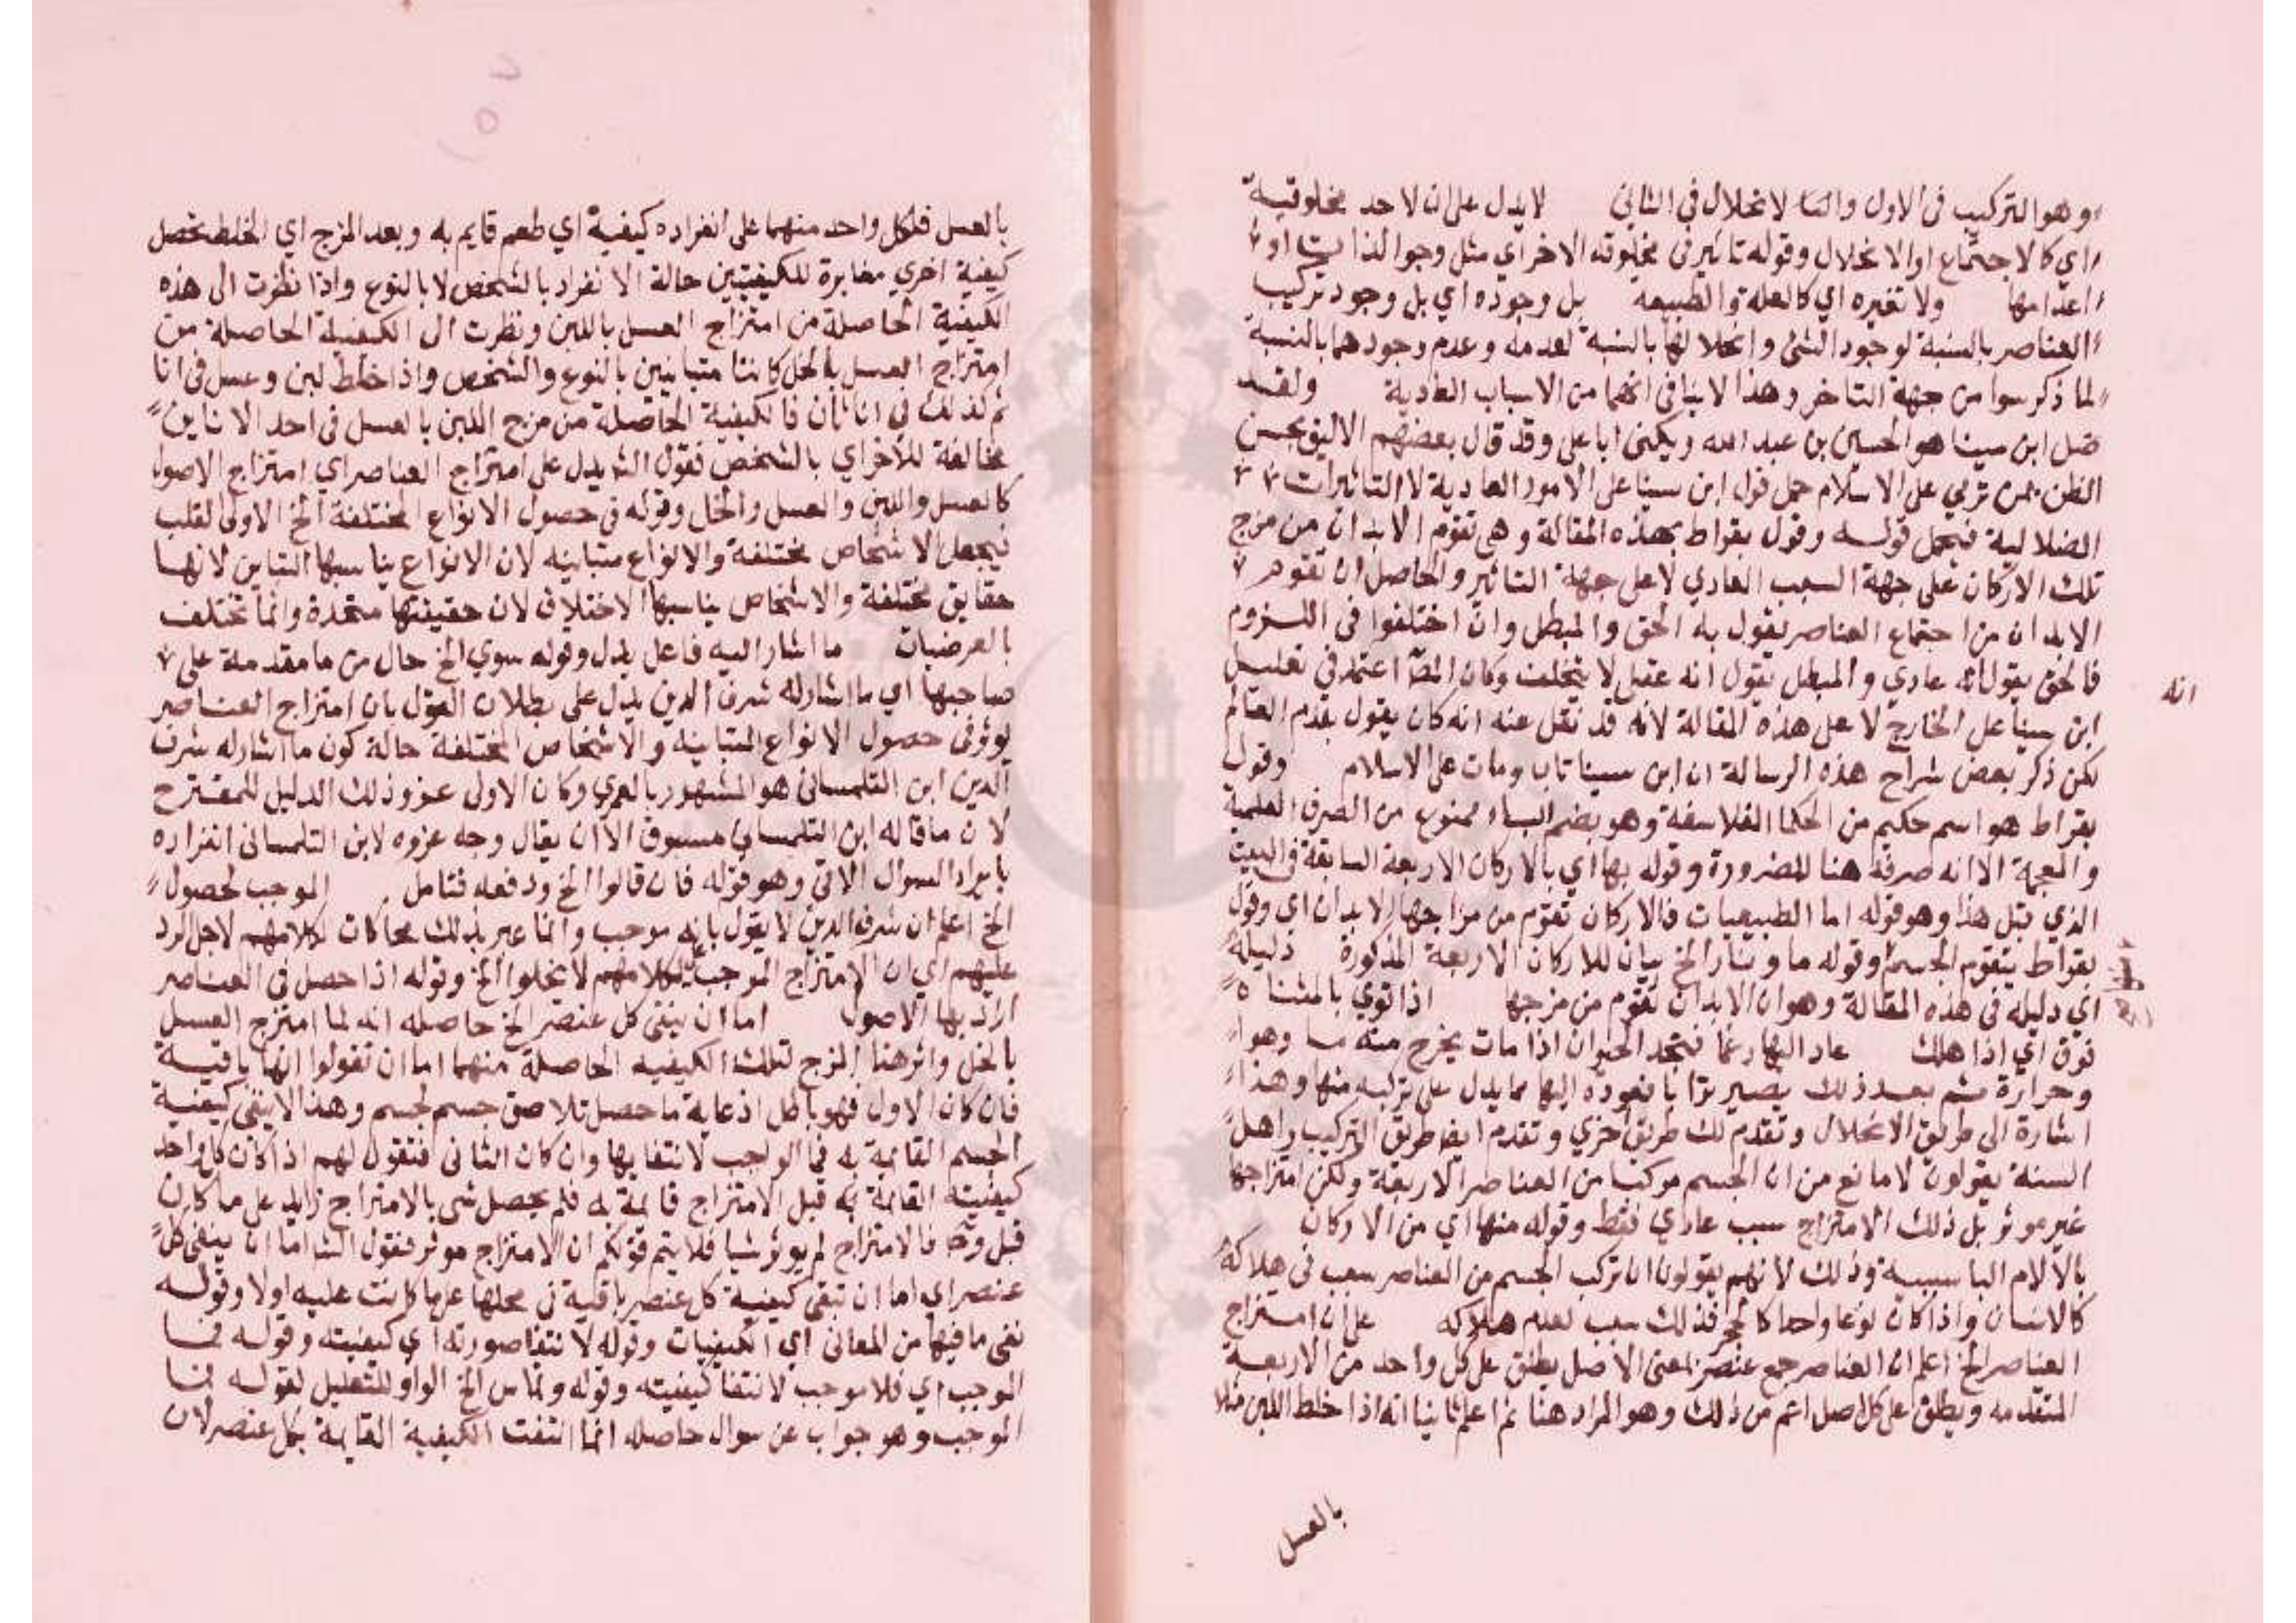 وهو التركيب في الاول والثا لانحلال في الثاني لا يدل على ان لاحد مخلوقية
اي كالاجتماع او الانحلال وقوله تاثير في مخلوقه الاخر اي مثل وجو الذا او
اعدامها ولا تغيره اي كالعلة والطبيعة بل وجوده اي بل وجود تركيب
العناصر بالنسبة لوجود الشئ وانحلالها بالنسبة لعدمه وعدم وجودهما بالنسبة
لما ذكر سوا من جهة التاخر وهذا لا ينافي انهما من الاسباب العادية ولقد
ضل ابن سينا هو الحسين بن عبد الله ويكنى ابا على وقد قال بعضهم الاليق بحسن
الظن بمن تربي على الاسلام حمل قول ابن سينا على الامور العادية لا التاثيرات
الضلالية فيحمل قوله وقول بقراط بهذه المقالة وهي تقوم الابدان من مزج
تلك الاركان على جهة السبب العادي لا على جهة التاثير والحاصل ان تقوم
الابدان من اجتماع العناصر يقول به المحق والمبطل وان اختلفوا في اللزوم
فالمحق يقول انه عادي والمبطل يقول انه عقلي لا يتخلف وكان المص اعتمد في تضليل
انه
ابن سينا على الخارج لا على هذه المقالة لانه قد نقل عنه انه كان يقول بقدم العالم
لكن ذكر بعض شراح هذه الرسالة ان ابن سينا تاب ومات على الاسلام وقول
بقراط هو اسم حكيم من الحكما الفلاسفة وهو بضم الباء ممنوع من الصرف العلمية
والعجمة الا انه صرفه هنا للضرورة وقوله بها اي بالاركان الاربعة السابقة في البيت
الذي قبل هذا وهو قوله اما الطبيعيات فالاركان تقوم من مزاجها الابدان اي وقول
بقراط بتقوم الجسم وقوله ما ونار الخ بيان للاركان الاربعة المذكورة دليله
اي دليله في هذه المقالة وهو ان الابدان تقوم من مزجها اذا توي بالمثناه
فوق اي اذا هلك عاد اليها رغما فتجد الحيوان اذا مات يخرج منه ما وهوا
وحرارة ثم بعد ذلك يصير ترابا فعوده اليها مما يدل على تركبه منها وهذا
اشارة الى طريق الانحلال وتقدم لك طريق اخري وتقدم ايضا طريق التركيب واهل
السنة يقولون لا مانع من ان الجسم مركبا من العناصر الاربعة ولكن امتزاجها
غير موثر بل ذلك الامتزاج سبب عادي فقط وقوله منها اي من الاركان
بالالام الباسببية وذلك لانهم يقولون ان تركب الجسم من العناصر سبب في هلاكه
كالانسان واذا كان نوعا واحدا كالحجر فذلك سبب لعدم هلاكه على ان امتزاج
العناصر الخ اعلم ان العناصر جمع عنصر بمعنى الاصل يطلق على كل واحد من الاربعة
المتقدمه ويطلق على كل اصل اعم من ذلك وهو المراد هنا ثم اعلم ثانيا انه اذا خلط اللبن مثلا
بالعسل
بالعسل فلكل واحد منهما على انفراده كيفية اي طعم قايم به وبعد المزج اي الخلط تحصل
كيفية اخري مغايرة للكيفيتين حالة الانفراد بالشخص لا بالنوع واذا نظرت الى هذه
الكيفية الحاصلة من امتزاج العسل باللبن ونظرت الى الكيفية الحاصلة من
امتزاج العسل بالخل كانتا متباينين بالنوع والشخص واذا خلط لبن وعسل في انا
ثم كذلك في انا ثان فالكيفية الحاصلة من مزج اللبن بالعسل في احد الاناين
مخالفة للاخر اي بالشخص فقول الش يدل على امتزاج العناصر اي امتزاج الاصول
كالعسل واللبن والعسل والخل وقوله في حصول الانواع المختلفة الخ الاولى القلب
فيجعل الاشخاص مختلفة والانواع متباينه لان الانواع يناسبها التباين لانها
حقايق مختلفة والاشخاص يناسبها الاختلاف لان حقيقتها متحدة وانما تختلف
بالعرضيات ما اشار اليه فاعل يدل وقوله سوي الخ حال من ما مقدمة على
صاحبها اي ما اشار له شرف الدين يدل على بطلان القول بان امتزاج العناصر
يوثر في حصول الانواع المتباينه والاشخاص المختلفة حالة كون ما اشار له شرف
الدين ابن التلمساني هو المشهور بالفهري وكان الاولى عزو ذلك الدليل للمقترح
لان ما قاله ابن التلمساني مسبوق الا ان يقال وجه عزوه لابن التلمساني انفراده
بايراد السوال الاتي وهو قوله فان قالوا الخ ودفعه فتامل الموجب لحصول
الخ اعلم ان شرف الدين لا يقول بانه موجب وانما عبر بذلك محاكات لكلامهم لاجل الرد
عليهم اي ان الامتزاج الموجب بكلامهم لا يخلوا الخ وقوله اذا حصل في العناصر
اراد بها الاصول اما ان ينفى كل عنصر الخ حاصله انه لما امتزج العسل
بالخل واثر هنا المزج لتلك الكيفيه الحاصلة منهما اما ان تقولوا انها باقية
فان كان الاول فهو باطل اذ غاية ما حصل تلاصق جسم لجسم وهذا لا ينفى كيفية
الجسم القائمة به فما الواجب لانتفايها وان كان الثاني فنقول لهم اذا كان كل واحد
كيفيته القائمة به قبل الامتزاج قائمة به فلم يحصل شى بالامتزاج زايد على ما كان
قبل وح فالامتزاج لم يوثر شيا فلا يتم قولكم ان الامتزاج موثر فنقول الش اما ان ينفى كل
عنصر اي اما ان تبقى كيفية كل عنصر باقية في محلها على ما كانت عليه اولا وقوله
نفى ما فيها من المعانى اي الكيفيات وقوله لانتفا صورته اي كيفيته وقوله فما
الموجب اي فلا موجب لانتفا كيفيته وقوله وتماس الخ الواو للتعليل لقوله فما
الموجب وهو جواب عن سوال حاصله انما انتفت الكيفية القايمة بكل عنصر لان